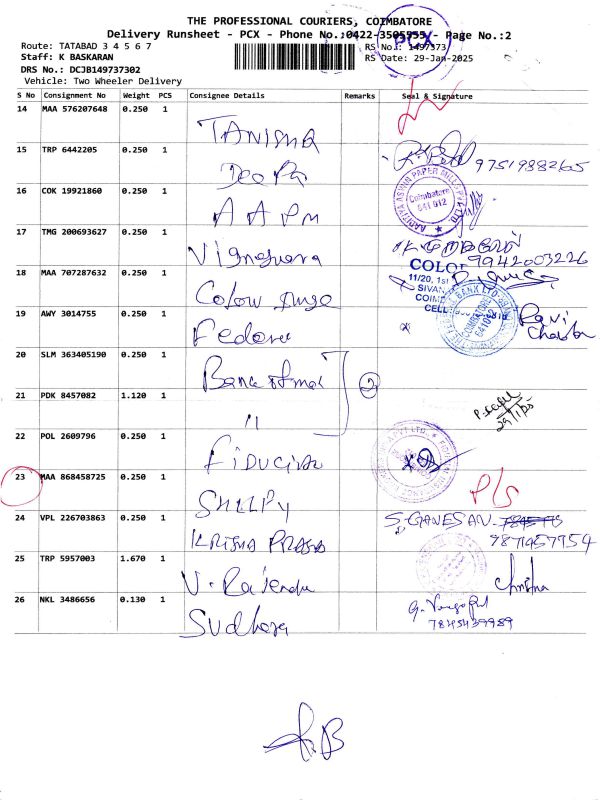 THE PROFESSIONAL COURIERS, COIMBATORE
Delivery Runsheet - PCX - Phone No.:0422-3505555 - Page No.:2
PCX
Route: TATABAD 3 4 5 6 7
RS No.: 1497373
Staff: K BASKARAN
RS Date: 29-Jan-2025
DRS No.: DCJB149737302
Vehicle: Two Wheeler Delivery
S No Consignment No Weight PCS Consignee Details Remarks Seal & Signature
14 MAA 576207648 0.250 1
TANISHA
15 TRP 6442205 0.250 1
Deepa
9751988265
16 COK 19921860 0.250 1
AADHYA ASWIN PAPER MILLS PVT LTD.
Coimbatore
641 012
A A P M
17 TMG 200693627 0.250 1
Vigneswara
9942003226
18 MAA 707287632 0.250 1
COLO
11/20, 1st
SIVAN
COIM
CELL
Colour
19 AWY 3014755 0.250 1
BANK LTD
COIMBATORE
641012
Ravi
Federal
20 SLM 363405190 0.250 1
Bank
2
21 PDK 8457082 1.120 1
"
22 POL 2609796 0.250 1
Fiducia
23 MAA 868458725 0.250 1
P/S
SHILPY
24 VPL 226703863 0.250 1
S. GANESAN
KRISHA PRASAD
25 TRP 5957003 1.670 1
V. Rajendra
Krishna
26 NKL 3486656 0.130 1
7845439989
Sudhara
K.B